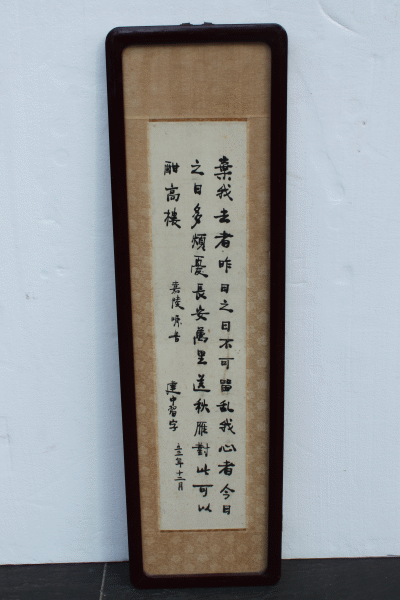 棄我去者昨日之日不可留乱我心者今日
之日多煩憂長安萬里送秋雁對此可以
酣高樓
嘉陵
建中習字
年十二月